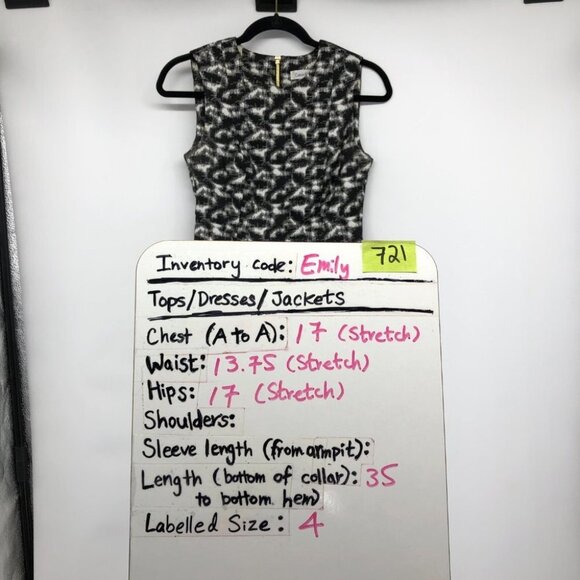 Inventory code: Emily 721
Tops/Dresses/Jackets
Chest (A to A): 17 (Stretch)
Waist: 13.75 (Stretch)
Hips: 17 (Stretch)
Shoulders:
Sleeve length (from armpit):
Length (bottom of collar): 35
to bottom hem)
Labelled Size: 4